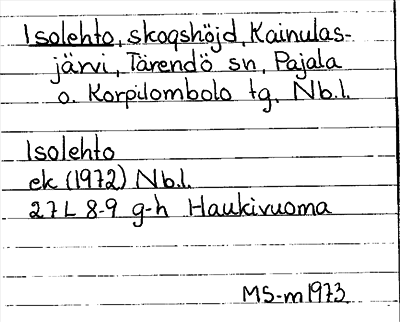 Isolehto, skogshöjd, Kainulas-
järvi, Tärendö sn, Pajala
o. Korpilombolo tg, Nb.l.
Isolehto
ek (1972) Nb.l.
27L 8-9 g-h Haukivuoma
MS-m 1973